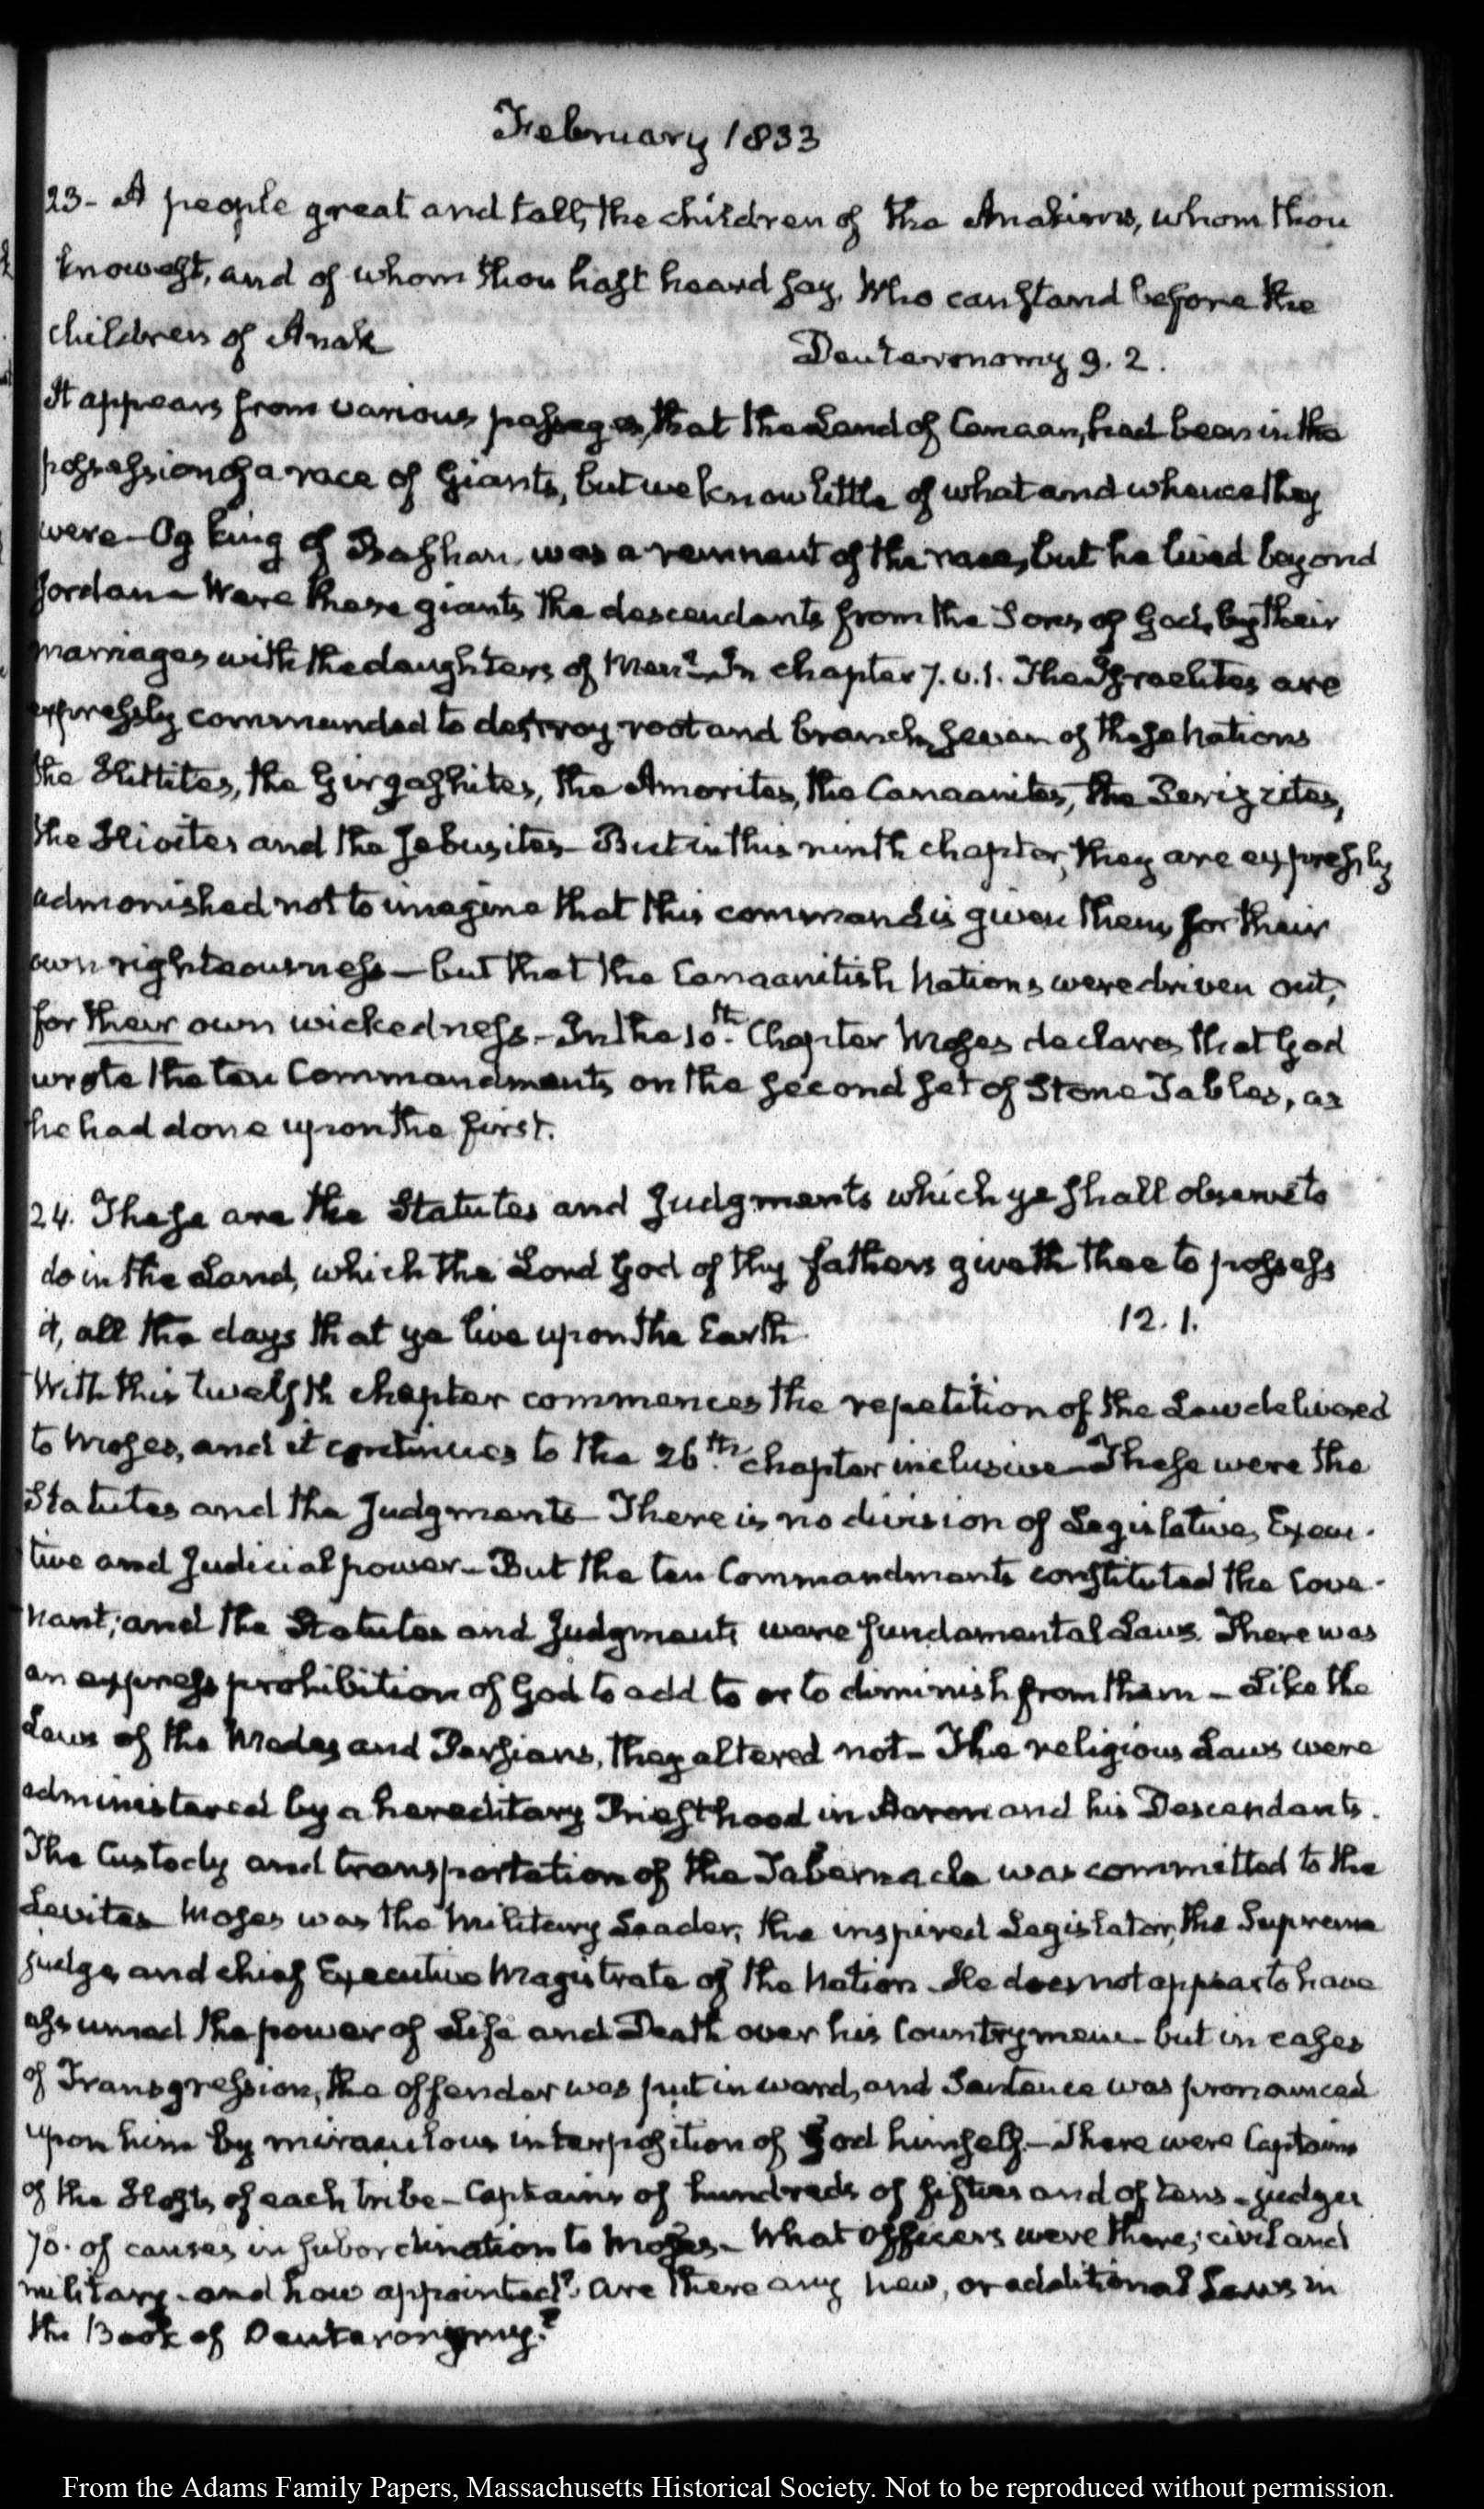 February 1833
23- A people great and tall, the children of the Anakims, whom thou
knowest, and of whom thou hast heard say, Who can stand before the
children of Anak
Deuteronomy 9. 2.
It appears from various passages, that the Land of Canaan, had been in the
possession of a race of Giants, but we know little of what and whence they
were—Og king of Bashan, was a remnant of the race, but he lived beyond
Jordan—Were these giants the descendants from the Sons of God, by their
marriages with the daughters of Men? In chapter 7. v. 1. The Israelites are
expressly commanded to destroy root and branch, seven of these Nations
the Hittites, the Girgashites, the Amorites, the Canaanites, the Perizzites,
the Hivites and the Jebusites—But in this ninth chapter, they are expressly
admonished not to imagine that this command is given them, for their
own righteousness—but that the Canaanitish Nations were driven out,
for their own wickedness—In the 10th. Chapter Moses declares that God
wrote the ten Commandments on the second set of Stone Tables, as
he had done upon the first.
24. These are the Statutes and Judgments which ye shall observe to
do in the Land, which the Lord God of thy fathers giveth thee to possess
it, all the days that ye live upon the Earth
12. 1.
With this twelfth chapter commences the repetition of the Law delivered
to Moses, and it continues to the 26th. chapter inclusive—These were the
Statutes and the Judgments—There is no division of Legislative, Execu-
tive and Judicial power—But the ten Commandments constituted the Cove-
nant; and the Statutes and Judgments were fundamental Laws. There was
an express prohibition of God to add to or to diminish from them—Like the
Laws of the Medes and Persians, they altered not—The religious Laws were
administered by a hereditary Priesthood in Aaron and his Descendants.
The Custody and transportation of the Tabernacle was committed to the
Levites—Moses was the Military Leader, the inspired Legislator, the Supreme
judge, and chief Executive Magistrate of the Nation. He does not appear to have
assumed the power of Life and Death over his Countrymen—but in cases
of Transgression, the offender was put in ward, and Sentence was pronounced
upon him by miraculous interposition of God himself—There were Captains
of the Hosts of each tribe—Captains of hundreds of fifties and of tens—judges
70. of causes in subordination to Moses—What Officers were there; civil and
military—and how appointed? are there any new, or additional Laws in
the Book of Deuteronomy?
From the Adams Family Papers, Massachusetts Historical Society. Not to be reproduced without permission.